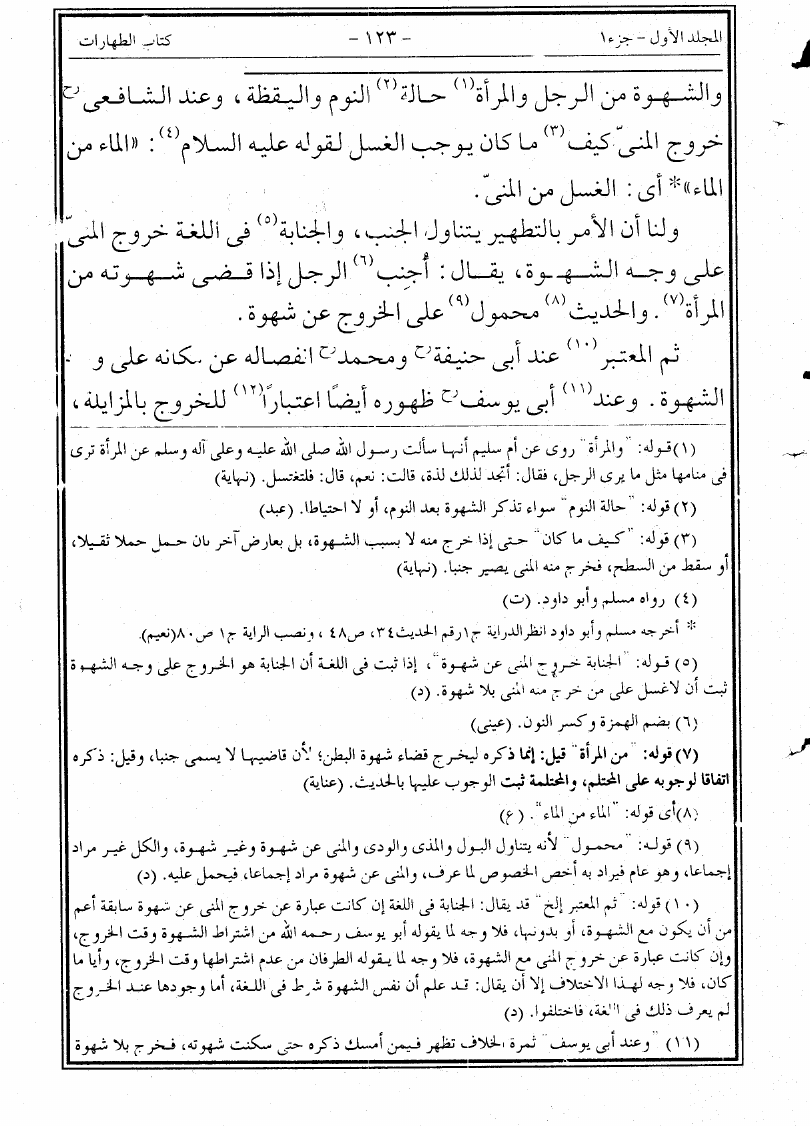 المجلد الأول - جزء ١ - ١٢٣ - كتاب الطهارات
والشهوة من الرجل والمرأة(١) حالة(٢) النوم واليقظة، وعند الشافعى رح
خروج المنىّ كيف(٣) ما كان يوجب الغسل لقوله عليه السلام(٤): «الماء من
الماء»* أى: الغسل من المنىّ.
ولنا أن الأمر بالتطهير يتناول الجنب، والجنابة(٥) فى اللغة خروج المنىّ
على وجه الشهوة، يقال: أُجنِب(٦) الرجل إذا قضى شهوته من
المرأة(٧). والحديث(٨) محمول(٩) على الخروج عن شهوة.
ثم المعتبر(١٠) عند أبى حنيفة رح ومحمد رح انفصاله عن مكانه على و
الشهوة. وعند(١١) أبى يوسف رح ظهوره أيضًا اعتبارًا(١٢) للخروج بالمزايلة،
(١) قوله: "والمرأة" روى عن أم سليم أنها سألت رسول الله صلى الله عليه وعلى آله وسلم عن المرأة ترى
فى منامها مثل ما يرى الرجل، فقال: أتجد لذلك لذة، قالت: نعم، قال: فلتغتسل. (نهاية)
(٢) قوله: "حالة النوم" سواء تذكر الشهوة بعد النوم، أو لا احتياطا. (عبد)
(٣) قوله: "كيف ما كان" حتى إذا خرج منه لا بسبب الشهوة، بل بعارض آخر بان حمل حملا ثقيلا،
أو سقط من السطح، فخرج منه المنى يصير جنبا. (نهاية)
(٤) رواه مسلم وأبو داود. (ت)
* أخرجه مسلم وأبو داود انظر الدراية ج١ رقم الحديث ٣٤، ص٤٨، ونصب الراية ج١ ص٨٠ (نعيم).
(٥) قوله: "الجنابة خروج المنى عن شهوة"، إذا ثبت فى اللغة أن الجنابة هو الخروج على وجه الشهوة
ثبت أن لاغسل على من خرج منه المنى بلا شهوة. (د)
(٦) بضم الهمزة وكسر النون. (عينى)
(٧) قوله: "من المرأة" قيل: إنما ذكره ليخرج قضاء شهوة البطن؛ لأن قاضيها لا يسمى جنبا، وقيل: ذكره
اتفاقا لوجوبه على المحتلم، والمحتلمة ثبت الوجوب عليها بالحديث. (عناية)
(٨) أى قوله: "الماء من الماء". (ع)
(٩) قوله: "محمول" لأنه يتناول البول والمذى والودى والمنى عن شهوة وغير شهوة، والكل غير مراد
إجماعا، وهو عام فيراد به أخص الخصوص لما عرف، والمنى عن شهوة مراد إجماعا، فيحمل عليه. (د)
(١٠) قوله: "ثم المعتبر إلخ" قد يقال: الجنابة فى اللغة إن كانت عبارة عن خروج المنى عن شهوة سابقة أعم
من أن يكون مع الشهوة، أو بدونها، فلا وجه لما يقوله أبو يوسف رحمه الله من اشتراط الشهوة وقت الخروج،
وإن كانت عبارة عن خروج المنى مع الشهوة، فلا وجه لما يقوله الطرفان من عدم اشتراطها وقت الخروج، وأيا ما
كان، فلا وجه لهذا الاختلاف إلا أن يقال: قد علم أن نفس الشهوة شرط فى اللغة، أما وجودها عند الخروج
لم يعرف ذلك فى اللغة، فاختلفوا. (د)
(١١) "وعند أبى يوسف" ثمرة الخلاف تظهر فيمن أمسك ذكره حتى سكنت شهوته، فخرج بلا شهوة